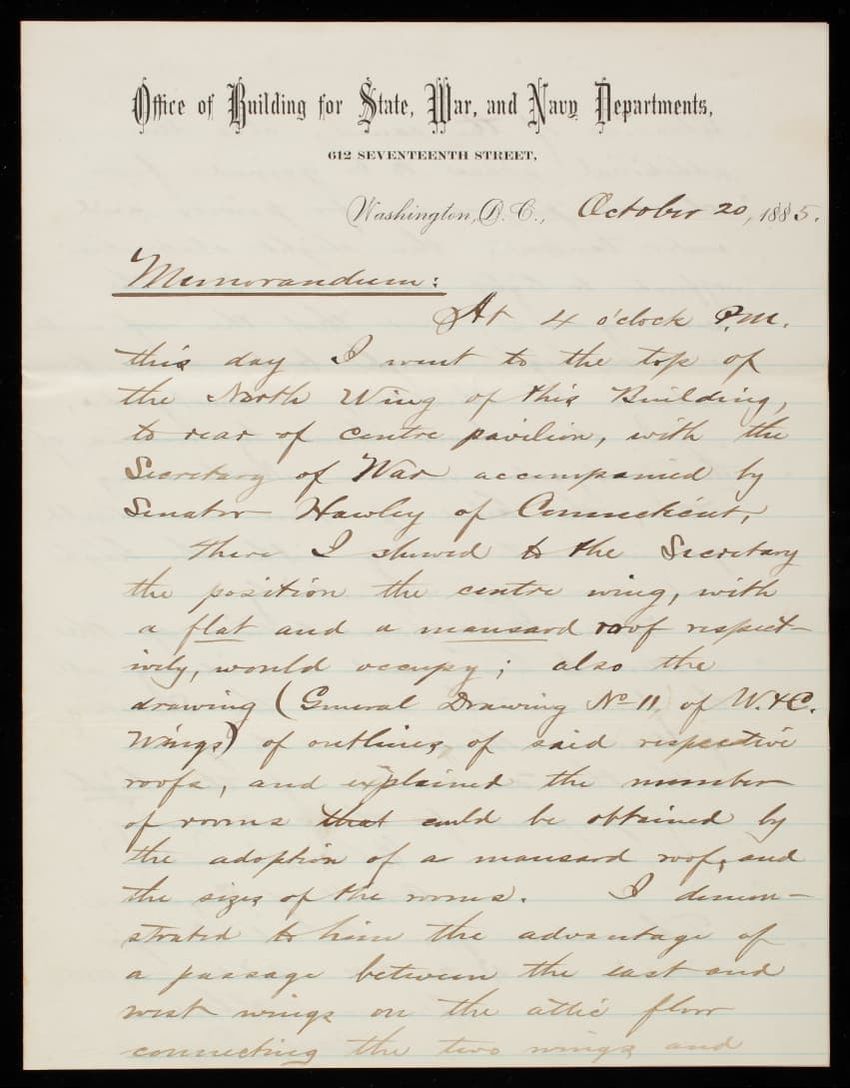 Office of Building for State, War, and Navy Departments,
612 SEVENTEENTH STREET,
Washington, D. C., October 20, 1885.
Memorandum:
At 4 o'clock P.M.
this day I went to the top of
the North Wing of this Building,
to rear of centre pavilion, with the
Secretary of War accompanied by
Senator Hawley of Connecticut,
there I showed to the Secretary
the position the centre wing, with
a flat and a mansard roof respect-
ively, would occupy; also the
drawing (General Drawing No 11, of W. & C.
Wings) of outlines of said respective
roofs, and explained the number
of rooms that could be obtained by
the adoption of a mansard roof, and
the sizes of the rooms. I demon-
strated to him the advantage of
a passage between the east and
west wings on the attic floor
connecting the two wings and